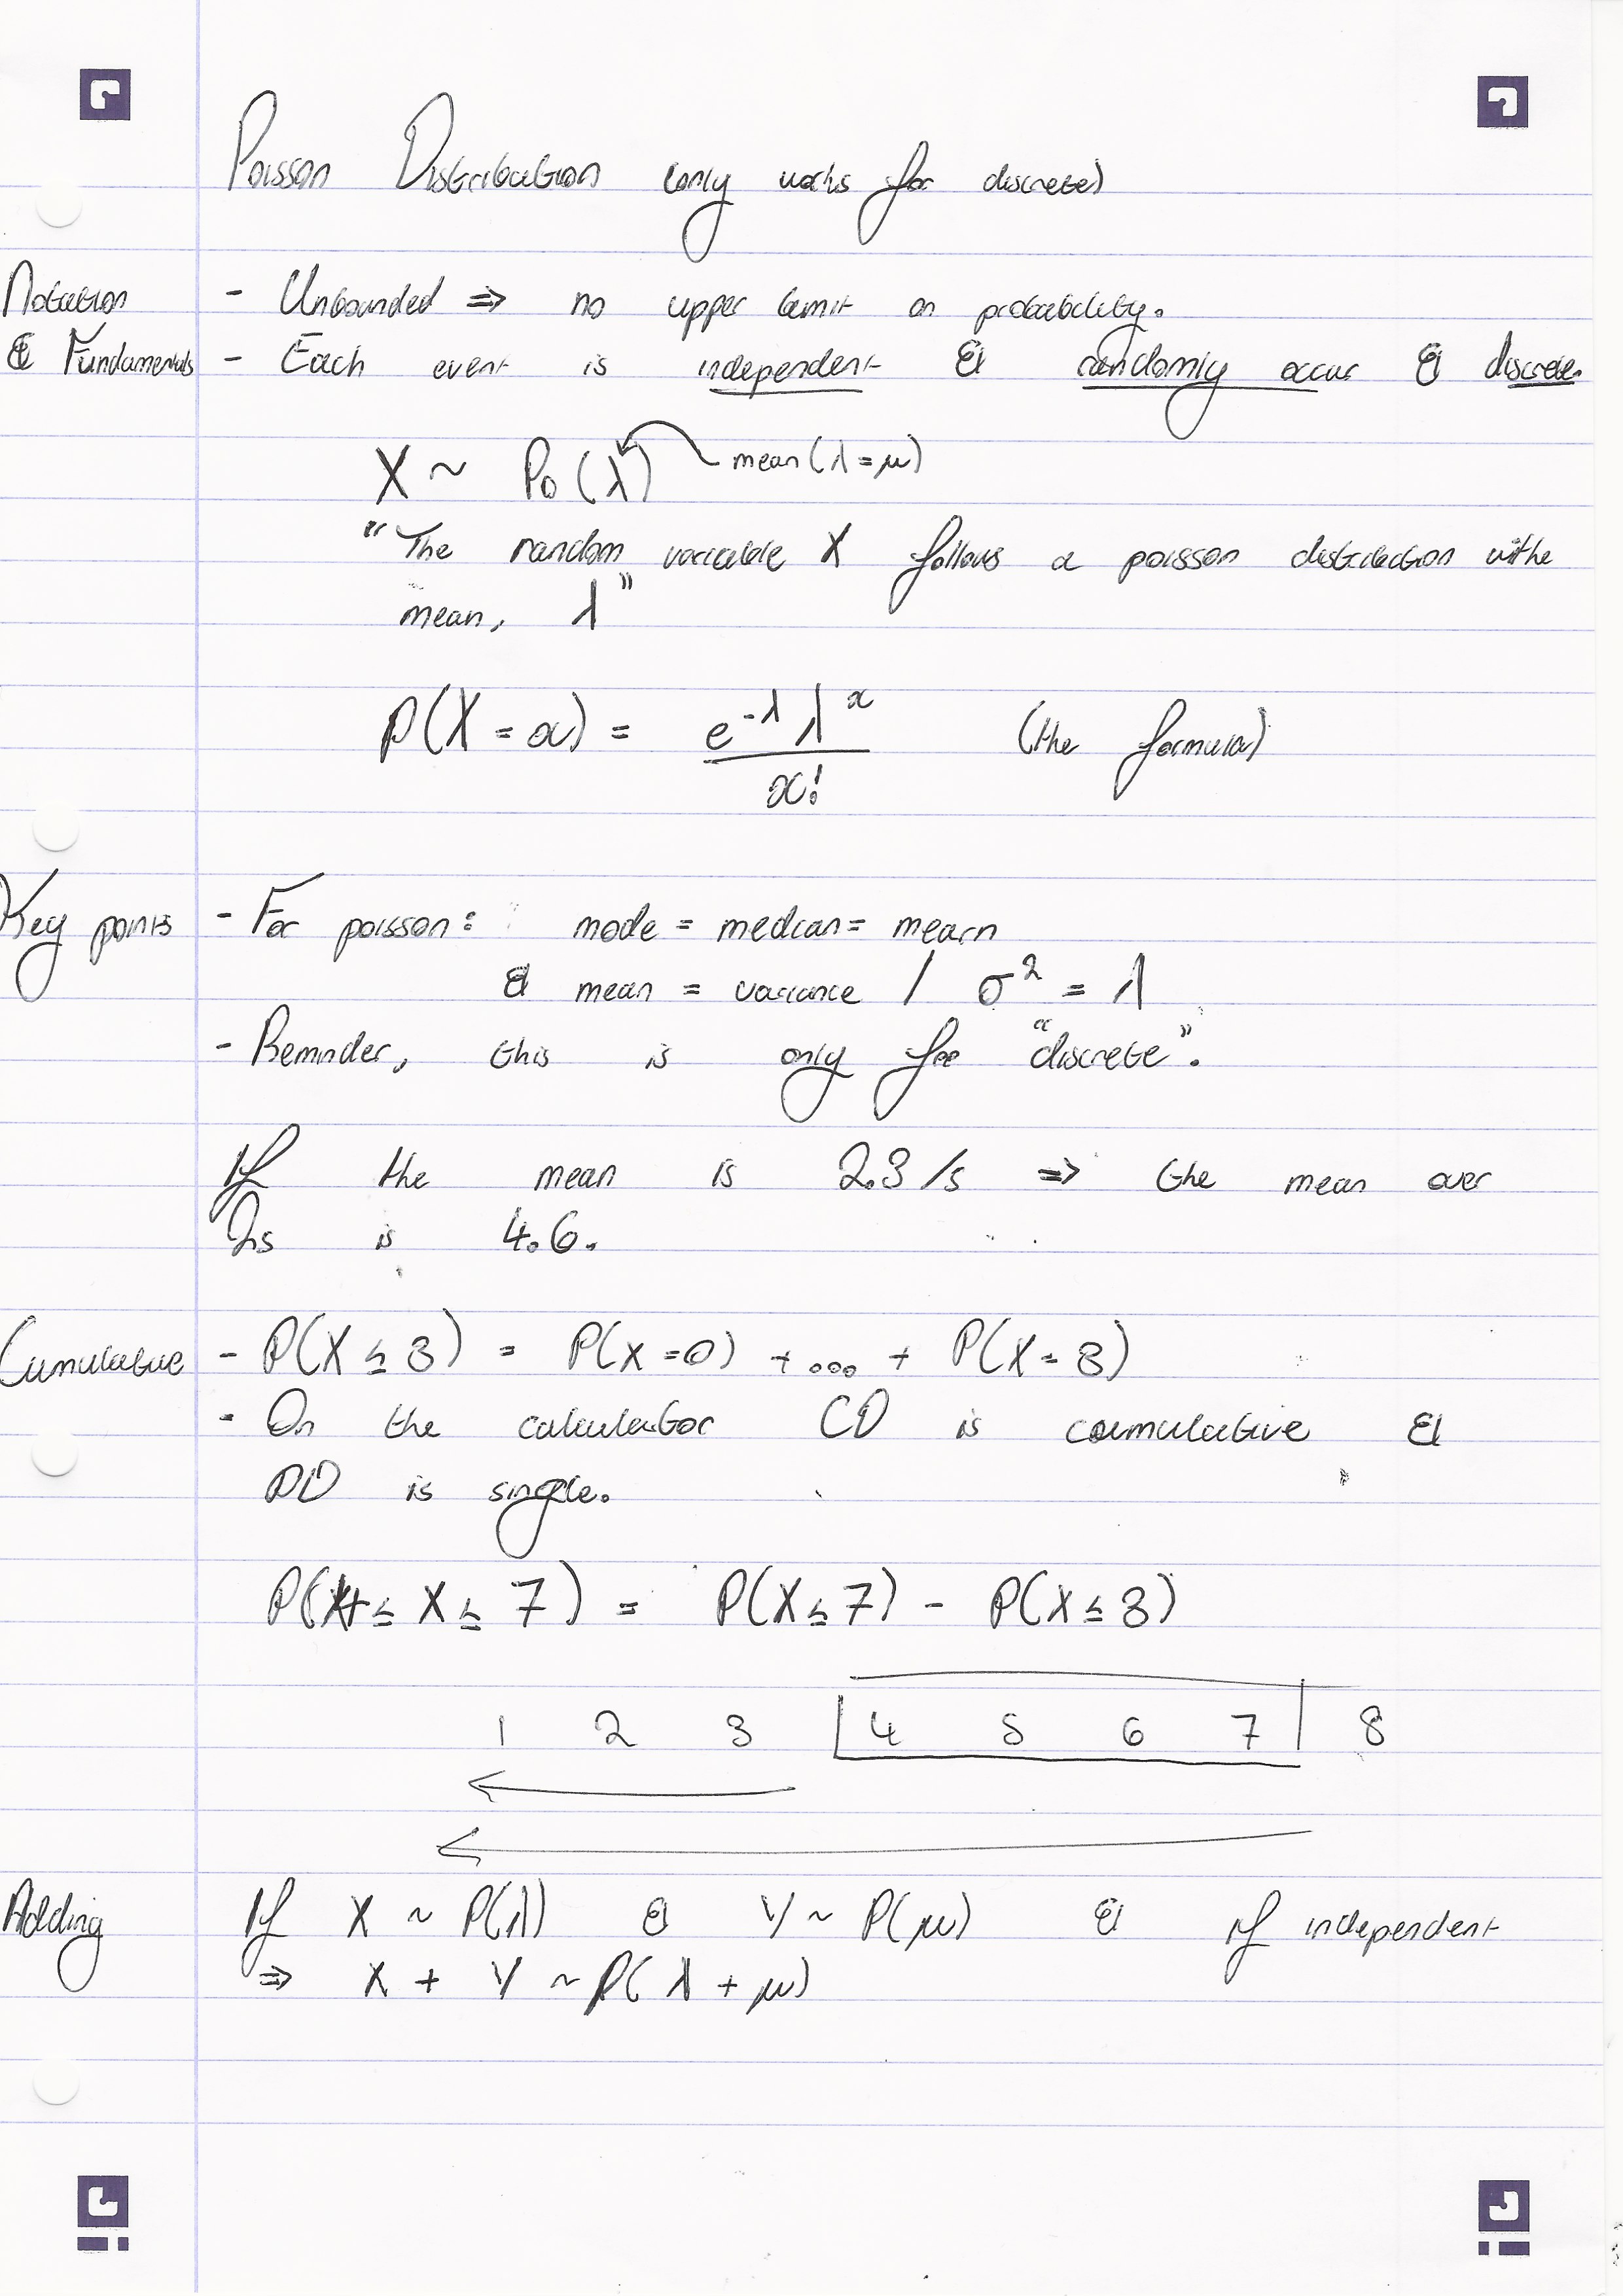 Poisson Distribution (only works for discrete)
Notation - Unbounded => no upper limit on probability.
& Fundamentals - Each event is independent & randomly occur & discrete.
X ~ Po(λ) mean (λ=μ)
"The random variable X follows a poisson distribution withe
mean, λ"
P(X = x) = e^-λ λ^x / x! (the formula)
Key points - For poisson: mode = median = mean
& mean = variance / σ² = λ
- Reminder, this is only for "discrete".
If the mean is 2.3/s => the mean over
2s is 4.6.
Cumulative - P(X ≤ 3) = P(X=0) + ... + P(X=3)
- On the calculator CD is cumulative &
PD is single.
P(4 ≤ X ≤ 7) = P(X ≤ 7) - P(X ≤ 3)
1 2 3 4 5 6 7 8
Adding If X ~ P(λ) & Y ~ P(μ) & if independent
=> X + Y ~ P(λ + μ)